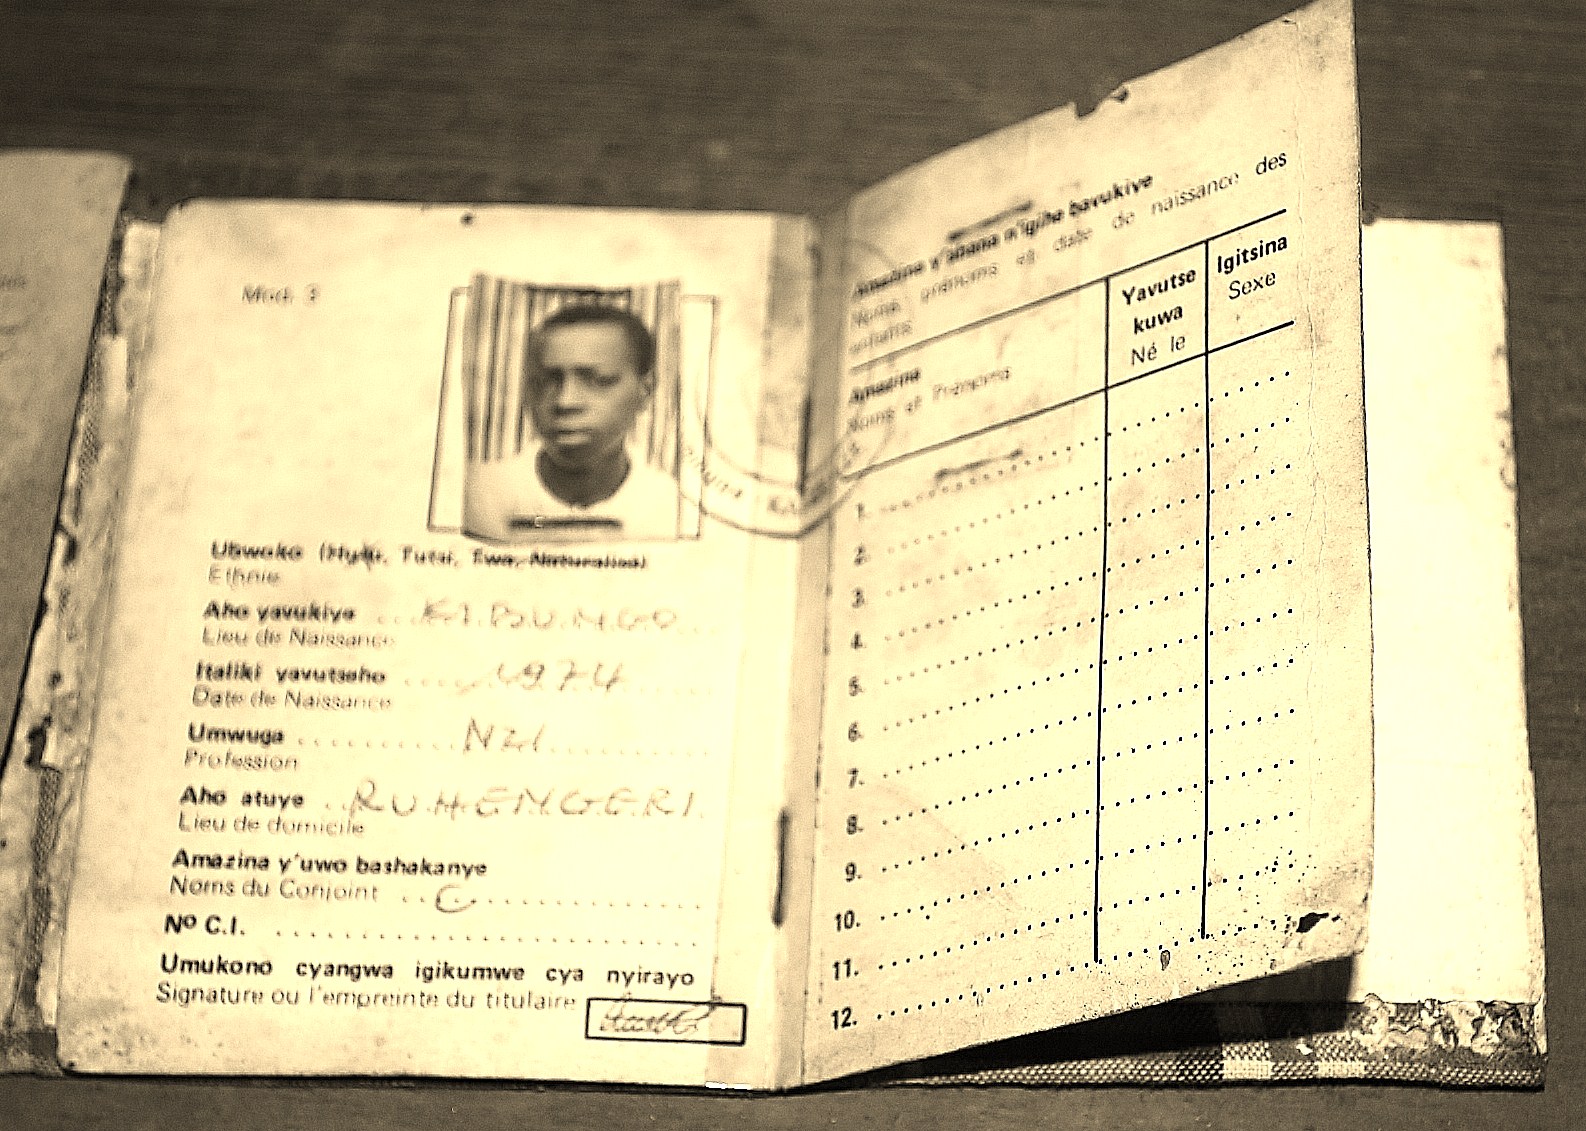 Mod. 3
Ubwoko (Hutu, Tutsi, Twa, Naturalisé)
Ethnie
Aho yavukiye KIBUNGO
Lieu de Naissance
Italiki yavutseho 1974
Date de Naissance
Umwuga
Profession
Aho atuye RUHENGERI
Lieu de domicile
Amazina y'uwo bashakanye
Noms du Conjoint
Nº C.I.
Umukono cyangwa igikumwe cya nyirayo
Signature ou l'empreinte du titulaire
Amazina y'abana n'igihe bavukiye
Noms, prénoms et date de naissance des
enfants
Amazina
Noms et Prénoms
Yavutse
kuwa
Né le
Igitsina
Sexe
1.
2.
3.
4.
5.
6.
7.
8.
9.
10.
11.
12.